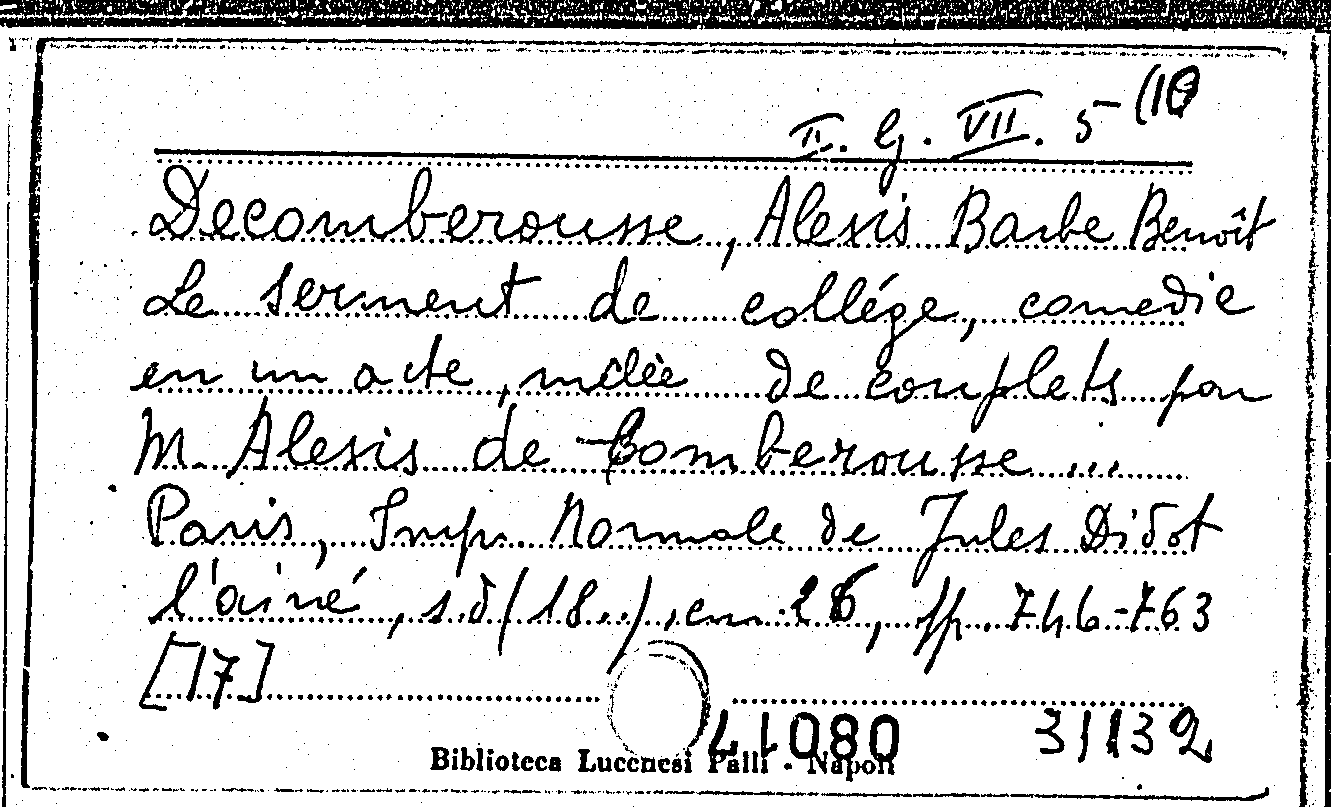 II. G. VII. 5 (10
Decomberousse, Alexis Barbe Benoît
Le serment de collége, comedie
en un acte, mêlée de couplets par
M. Alexis de Comberousse ...
Paris, Imp. Normale de Jules Didot
l'ainé, s.d (18..), cm. 26, pp. 746-763
[17]
41080 31132
Biblioteca Lucchesi Palli - Napoli